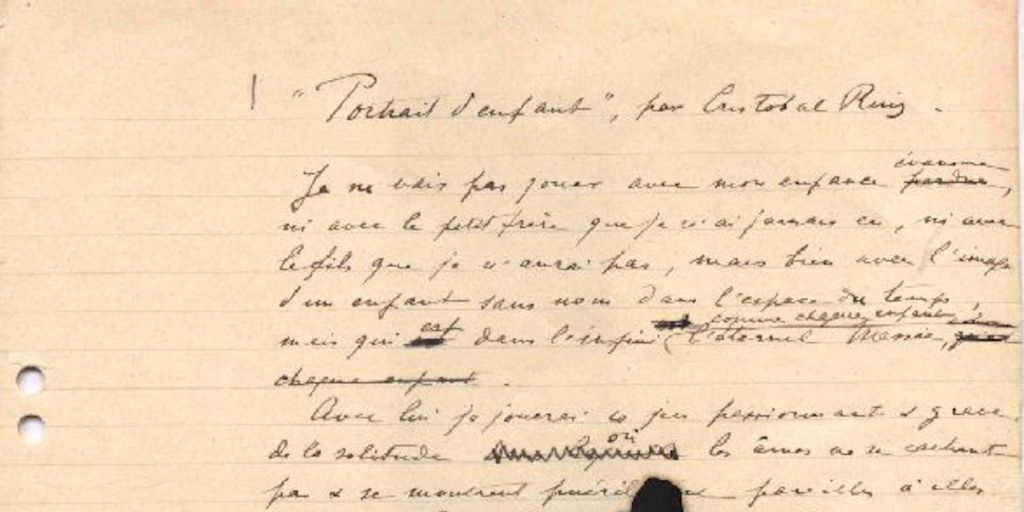 "Portrait d'enfant", par Cristobal Ruiz.
évanouie
Je ne vais pas jouer avec mon enfance perdue,
ni avec le petit frère que je n'ai jamais eu, ni avec
le fils que je n'aurai pas, mais bien avec l'image
d'un enfant sans nom dans l'espace du temps,
comme chaque enfant,
mais qui est dans l'infini l'éternel Messie,
chaque enfant.
Avec lui je jouerai ce jeu passionnant & grave
de la solitude où les âmes ne se cachent
pas & se montrent pareilles à elles